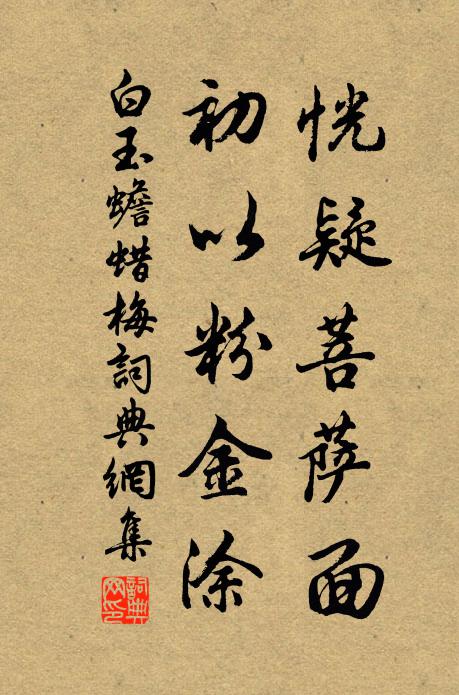 恍疑菩萨面
初以粉金涂
白玉蟾蜡梅詞典網集
詞典网印